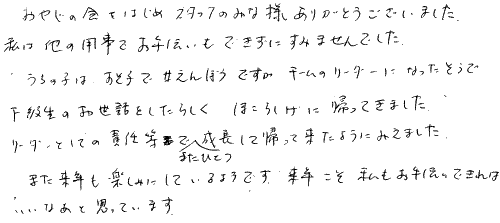 おやじの会をはじめスタッフのみな様ありがとうございました。
私は他の用事でお手伝いもできずにすみませんでした。
うちの子は、あと予で甘えんぼうですが チームのリーダーになったそうで
下級生のお世話をしたらしく ほこらしげに帰ってきました。
リーダーとしての責任等で成長して帰って来たようにみえました。
またひとつ
また来年も楽しみにしているようです。来年こそ私もお手伝いできれば
いいなあと思っています